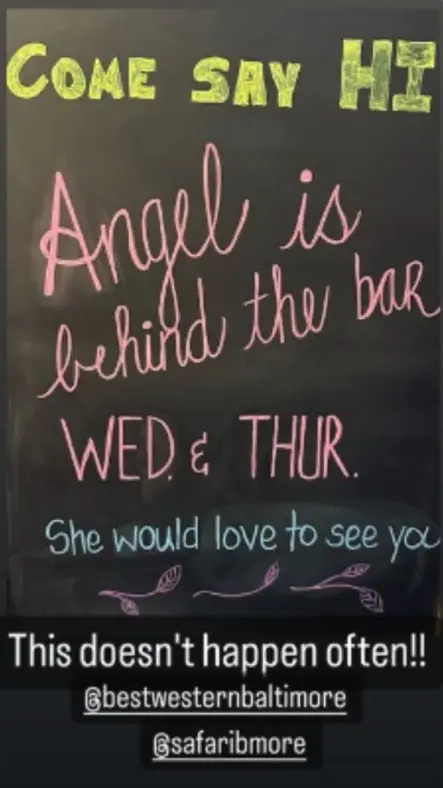 COME SAY HI
Angel is
behind the baR
WED. & THUR.
She would love to see you
This doesn't happen often!!
@bestwesternbaltimore
@safaribmore